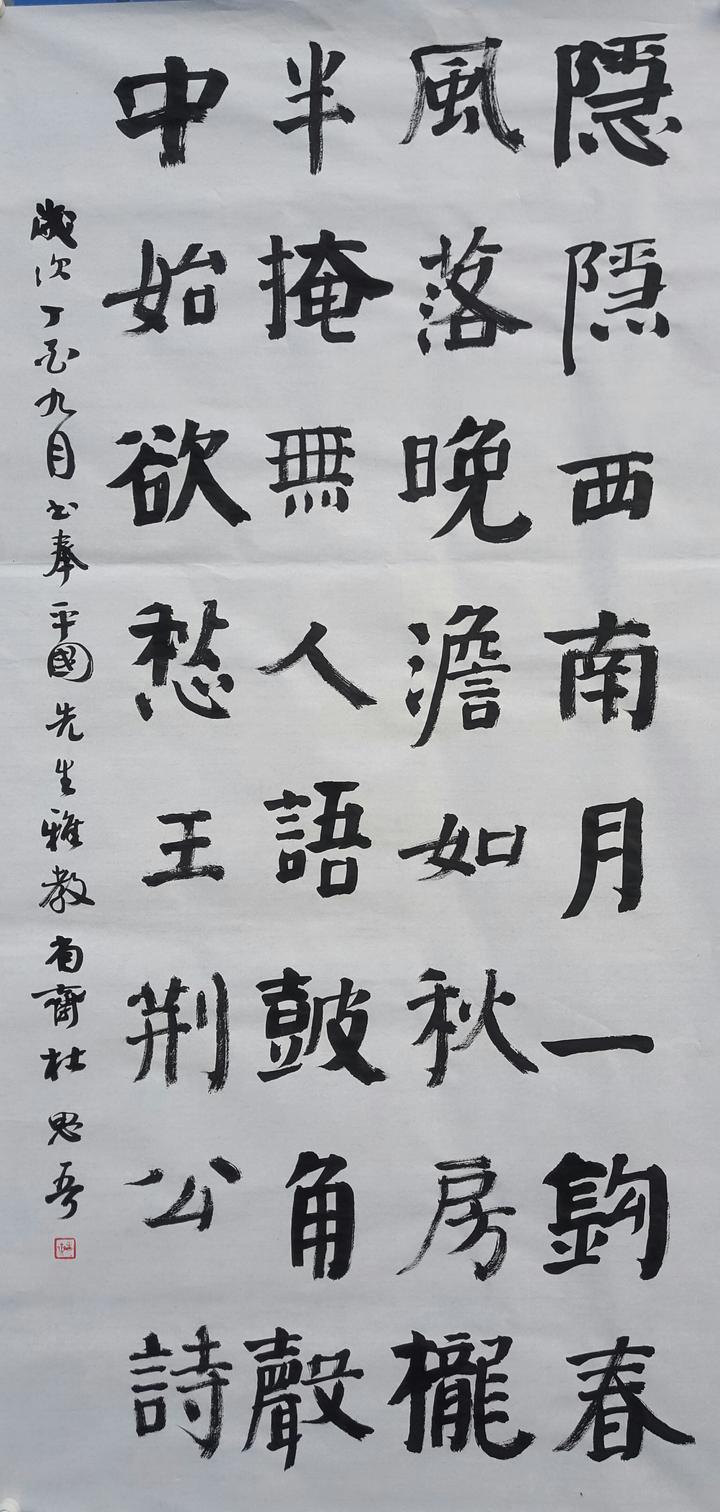 隱隱西南月一鈎春
風落晚澹如秋房櫳
半掩無人語鼓角聲
中始欲愁王荆公詩
歲次丁酉九月書奉平國先生雅教尚齋杜思吾